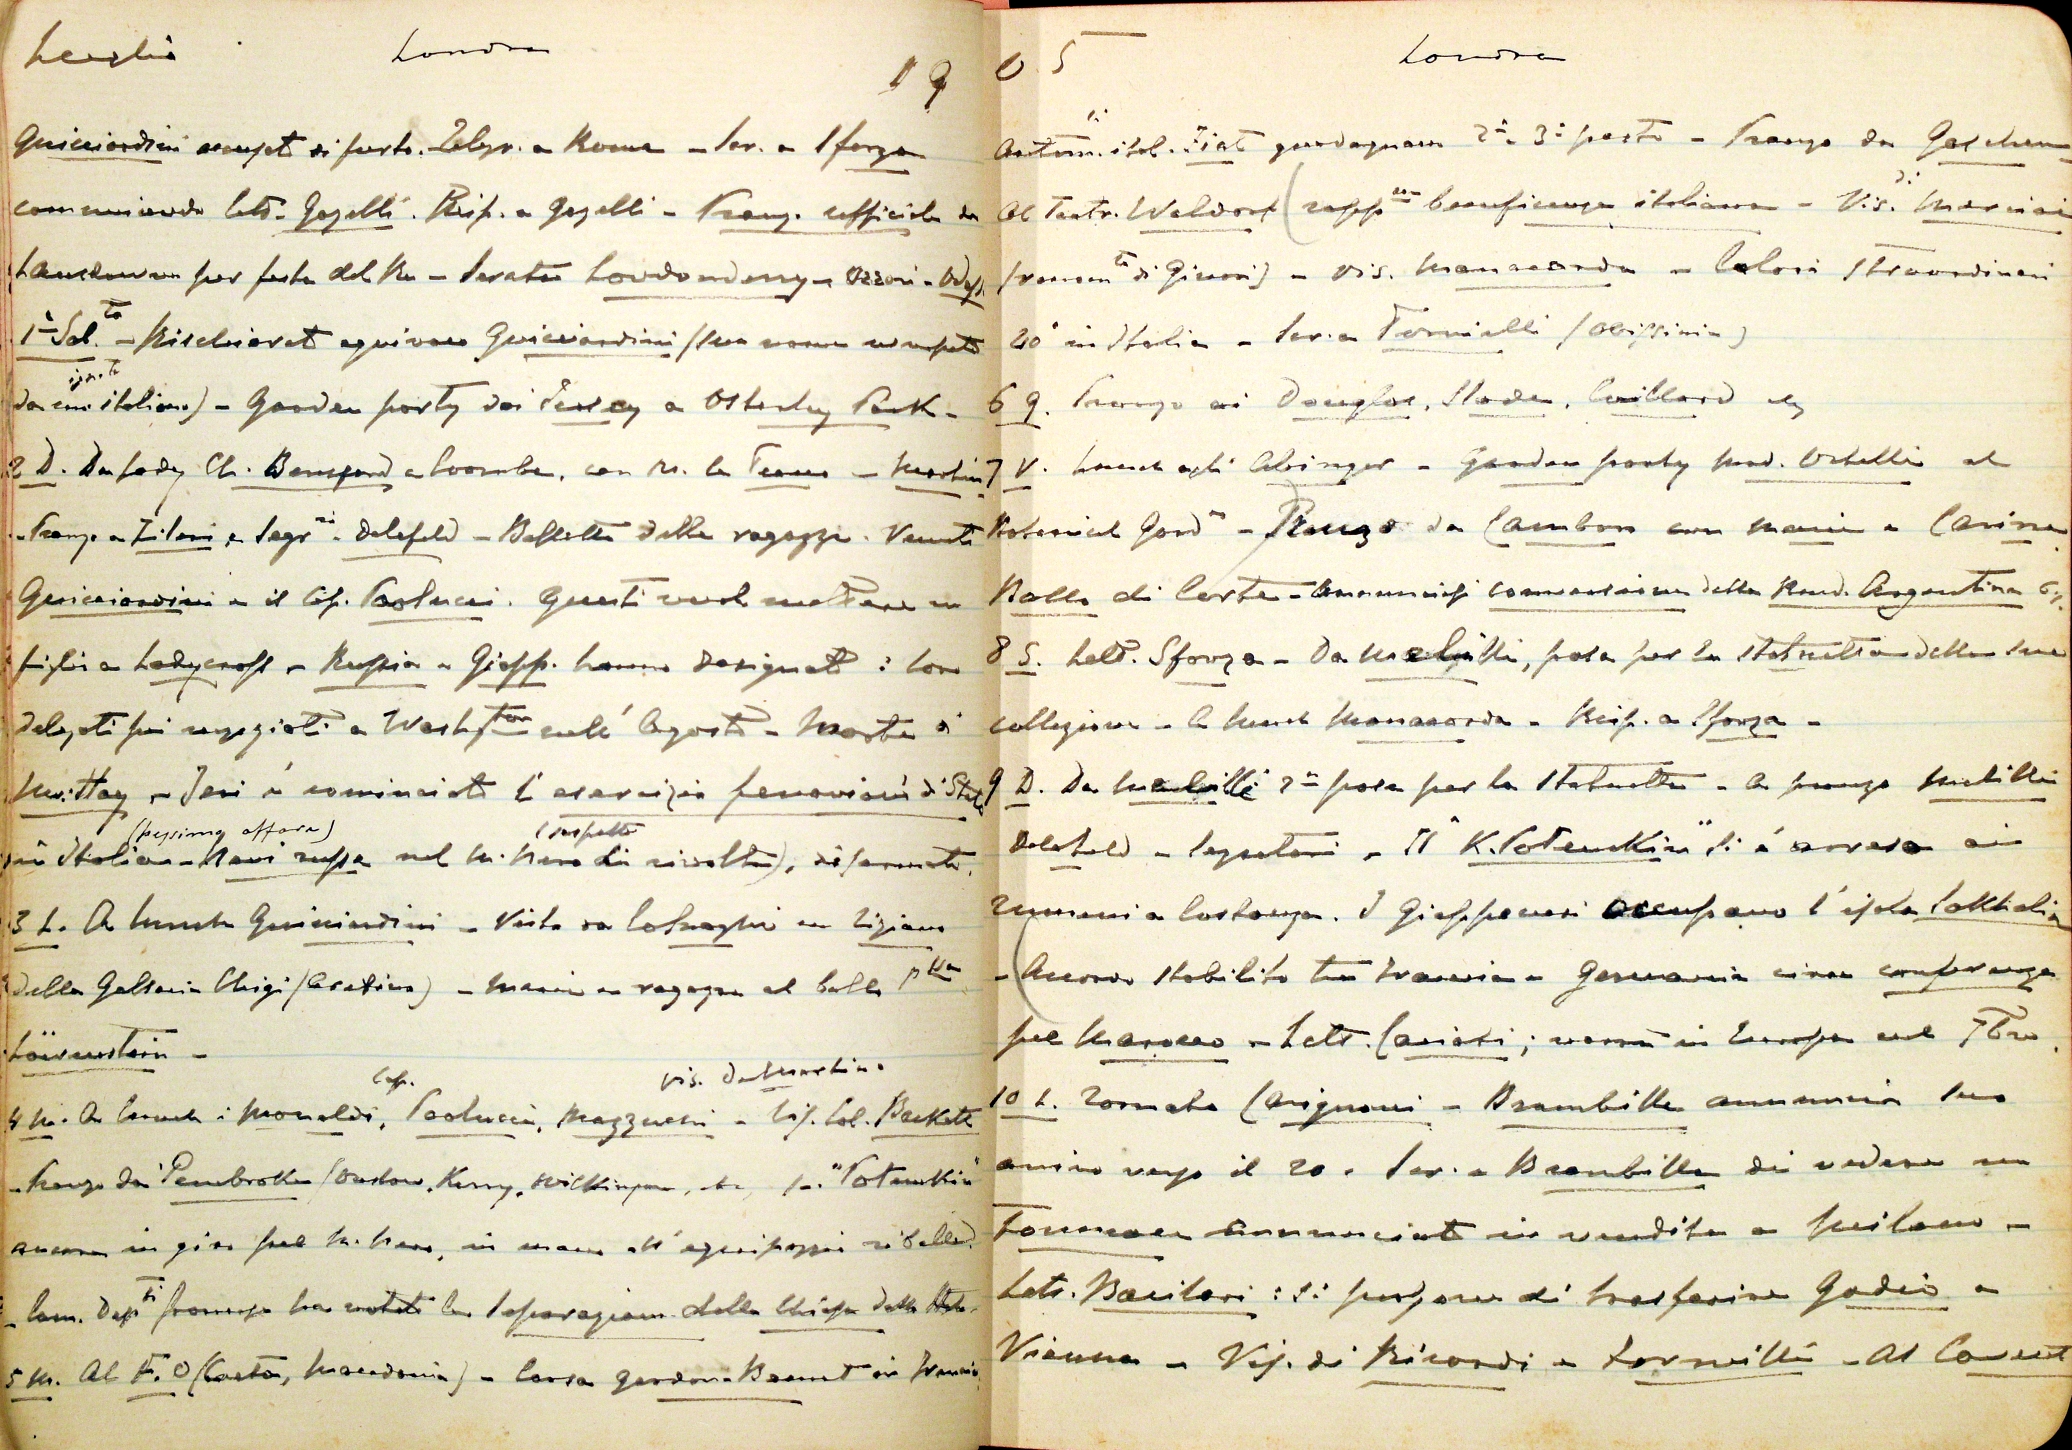 Luglio Londra 19
Guicciardini accusato di furto. Telegr. a Roma - Scr. a Sforza
comunicando lett. Gazelli. Risp. a Gazelli - Pranzo ufficiale da
Lansdowne per festa del Re - Serata Londonderry -
1° Sab.to - Rischiarato equivoco Guicciardini (suo nome usurpato
da un ignoto italiano) - Garden party dai Jersey a Osterley Park -
2 D. Da Lady Ch. Beresford a Coombe, con M. la - Martin
- Pranzo a Tiloni, e segri - Delafeld - Balletto delle ragazze. Venuti
Guicciardini e il Cap. Paolucci. Questi vuol mettere un
figlio a Ladycross - Russia e Giapp. hanno designato i loro
delegati per negoziati a Washgton nell' Agosto - Morte di
M. Hay - Ieri è cominciato l'esercizio ferroviario di Stato
in Italia (pessimo affare) - Navi russe nel M. Nero (sospette di rivolta), disarmate.
3 L. A lunch Guicciardini - Visto da Colnaghi un Tiziano
della Galleria Chigi (Aretino) - Maria e ragazze al ballo pssa
Löwenstein -
4 M. A lunch i Monaldi, Cap. Paolucci, Mazzucchi - vis. De Martino - Vis. Col. Beckett
- Pranzo dai Pembroke (Onslow, Kerry, Wilkinson, etc. - "Potemkin"
ancora in giro pel M. Nero, in mano all' equipaggio ribelle.
- Cam. Depti francese ha votato la separazione della Chiesa dallo Stato.
5 M. Al F.O (Creta, Macedonia) - Corsa Gordon-Bennet in Francia,
05 Londra
Autom.li ital. Fiat guadagnano 2° e 3° posto - Pranzo da Goschen
Al Teatr. Waldorf (rappne beneficenza italiana - Vis. di
- vis. Manacorda - Calori straordinari
40° in Italia - Scr. a Tornielli (Abissinia)
6 G. Pranzo ai Douglas, Sladen, Caillard etc
7 V. Lunch agli Abinger - Garden party Mad. Ortelli al
Botanical Gardn - Pranzo da Cambon con Maria e Carina.
Ballo di Corte - Annunciasi conversione della Rend. Argentina 6%.
8 S. Lett. Sforza - Da Melilli, posa per la statuetta della sua
collezione - A lunch Manacorda - Risp. a Sforza -
9 D. Da Melilli 2a posa per la statuetta - A pranzo Melilli
Delafeld - Segretari - Il "K. Potemkin" si è arreso ai
rumeni a Costanza. I Giapponesi occupano l'isola Sakhalin
- Accordo stabilito tra Francia e Germania circa conferenza
pel Marocco - Lett. Caviosi; verrà in Europa nel 7bre.
10 L. Tornata Carignani - Brambilla annuncia suo
arrivo verso il 20. Scr. a Brambilla di vedere un
annunciato in vendita a Milano -
Lett. Bacilari: si propone di trasferire Gadio a
Vienna - Vis. di Ricordi e - Al Covent